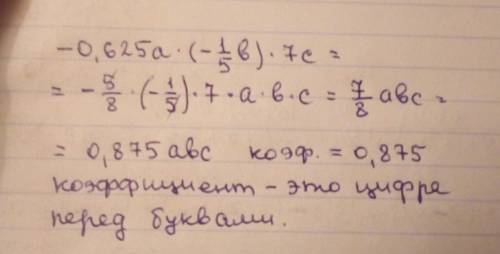 -0,625а · (-1/5 в) · 7с =
= -5/8 · (-1/5) · 7 · а · в · с = 7/8 авс =
= 0,875 авс коэф. = 0,875
коэффициент - это цифра
перед буквами.